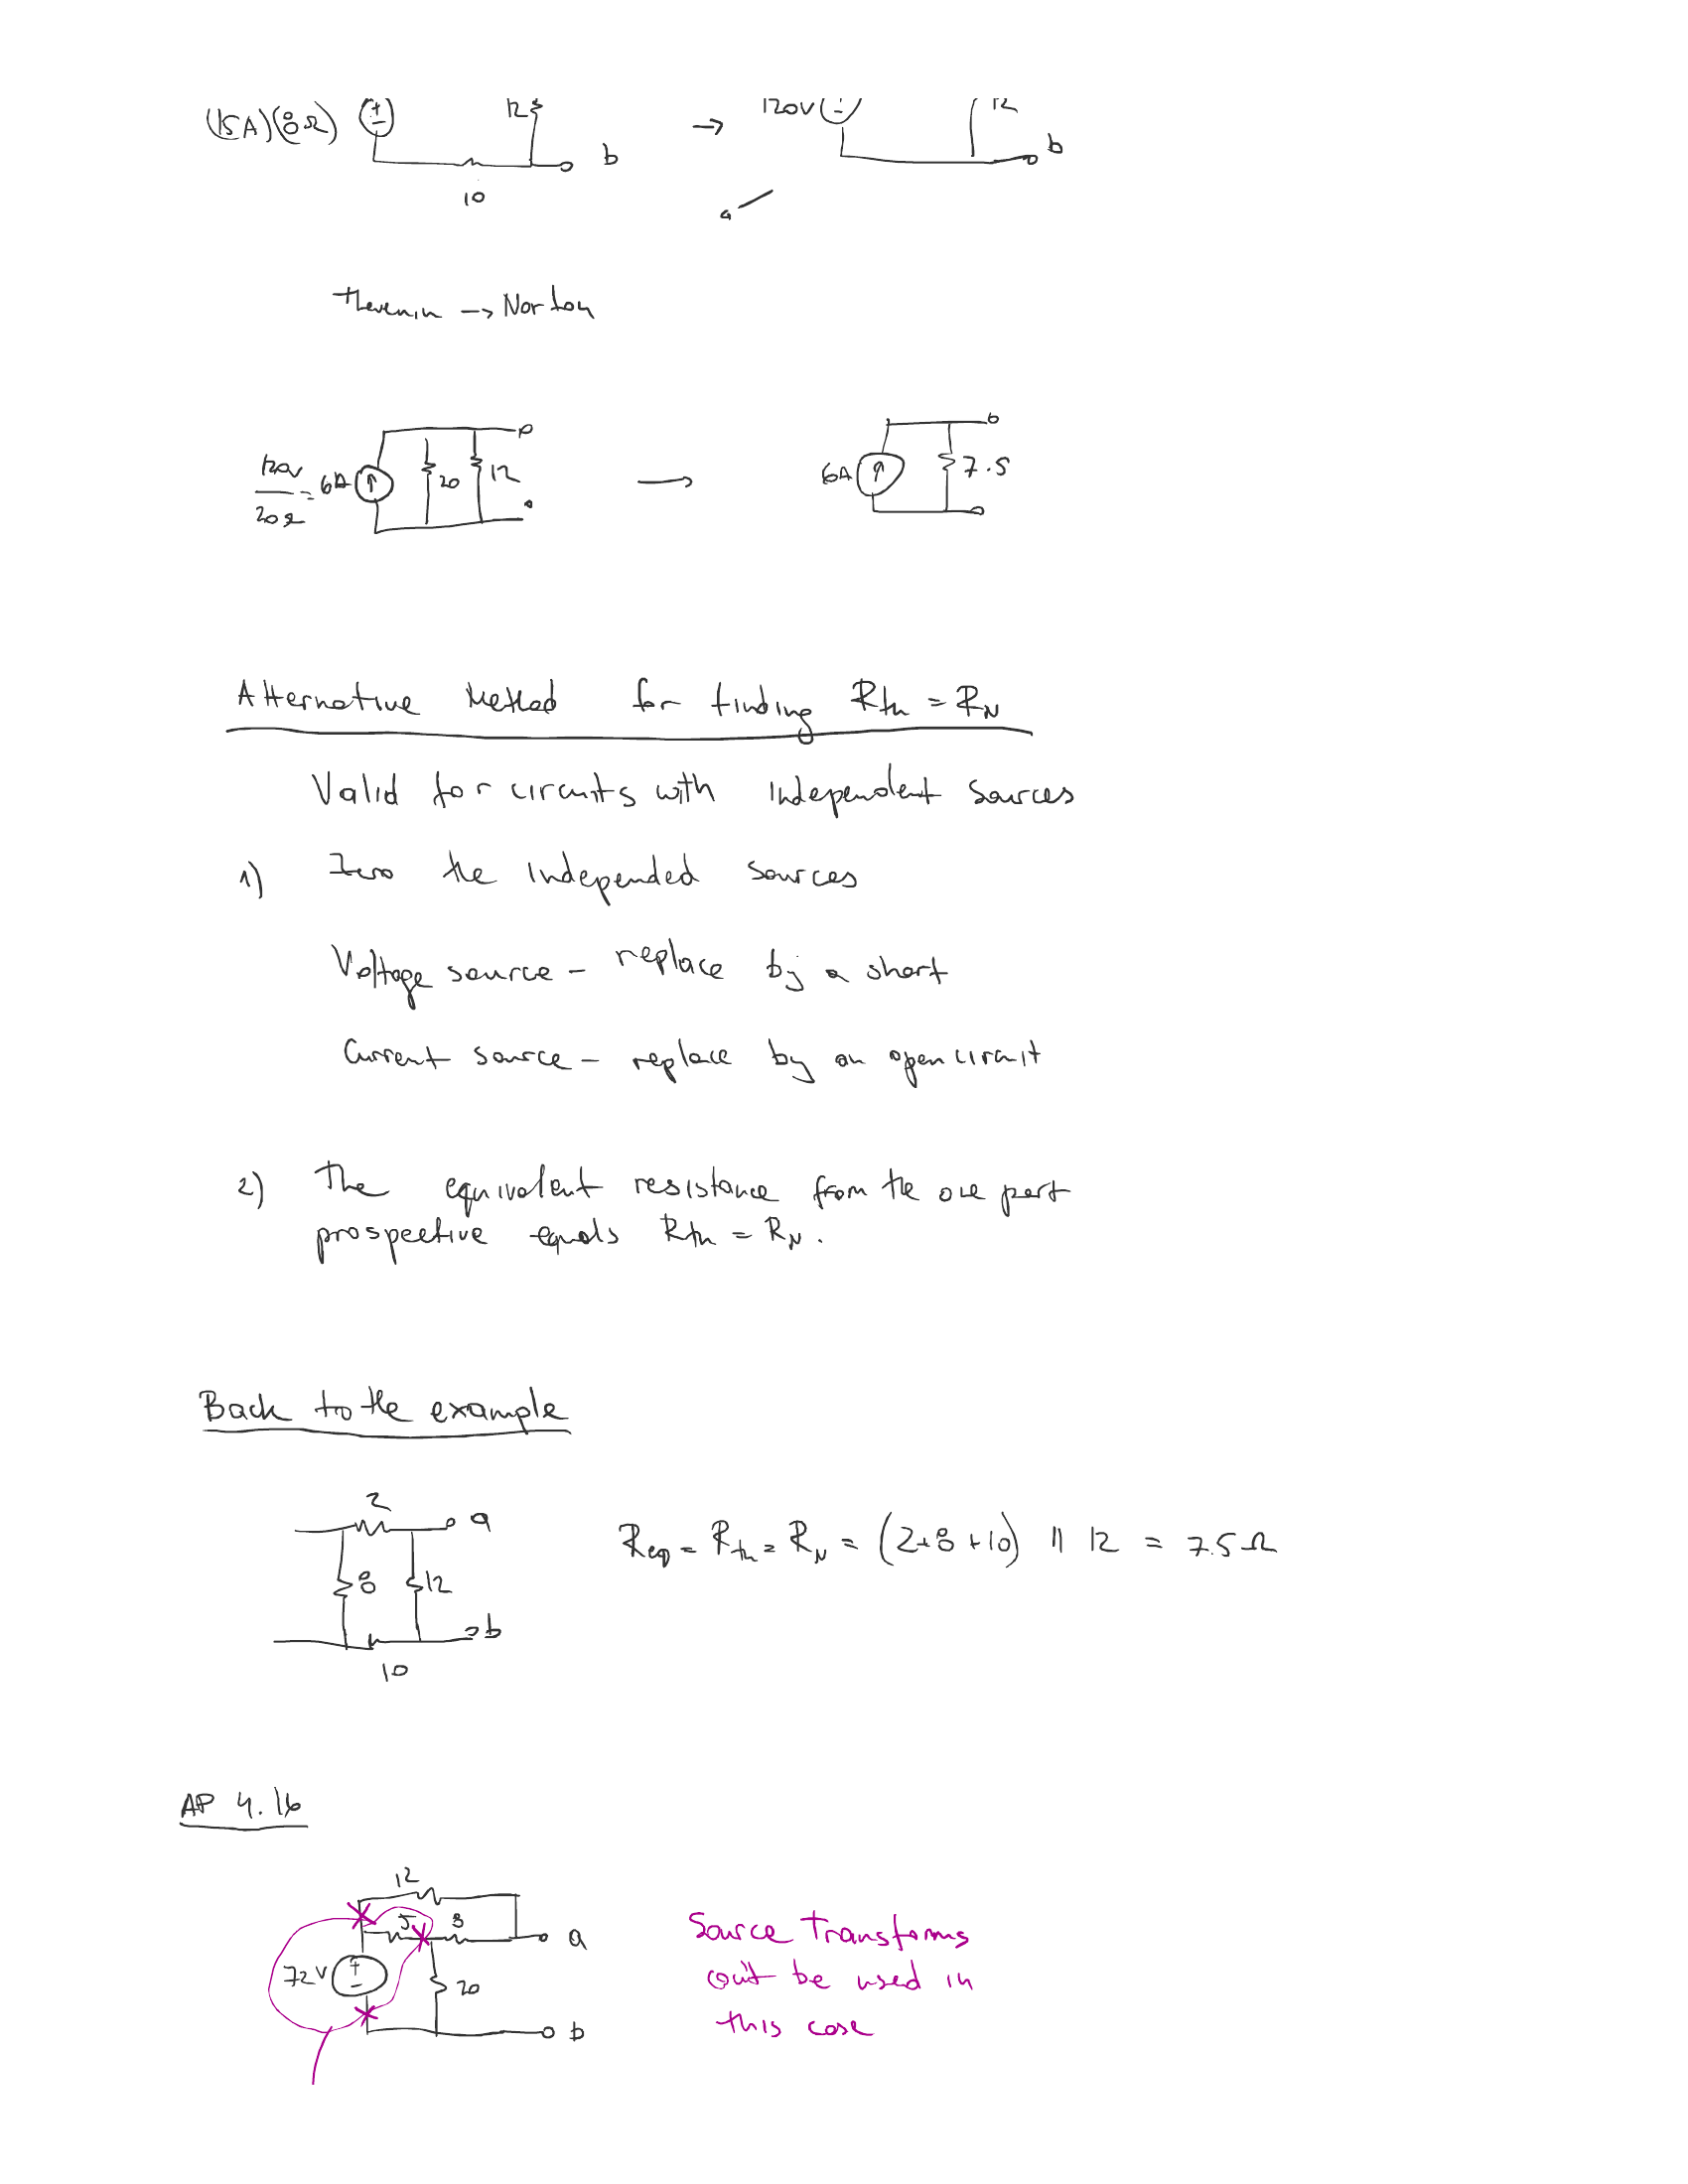 (15A)(8Ω) + - 12 b → 120V - 12 b
10 a
thevenin → Norton
120V / 20Ω = 6A 20 12 → 6A 7.5
Alternative Method for finding Rth = RN
Valid for circuits with independent sources
1) Zero the independed sources
Voltage source - replace by a short
Current source - replace by an open circuit
2) The equivalent resistance from the one port
prospective equals Rth = RN.
Back to the example
2 a
8 12 b
10
Req = Rth = RN = (2+8+10) || 12 = 7.5Ω
AP 4.16
12
5 8 a
72V + - 20
b
Source Transforms
can't be used in
this case